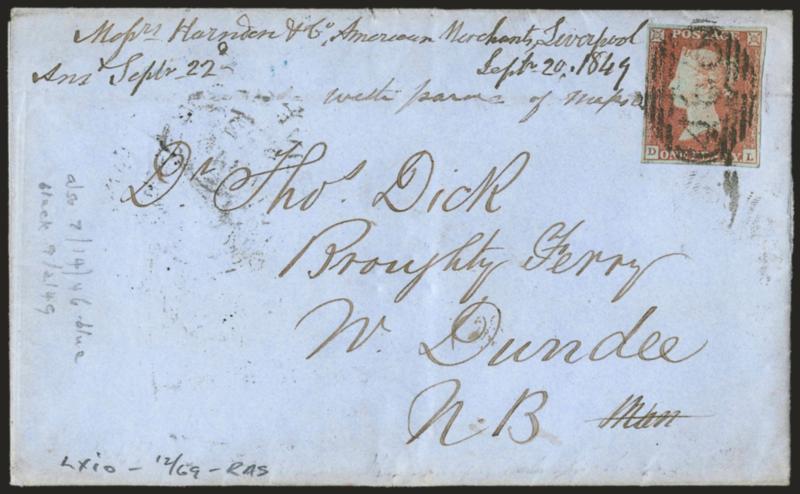 Messrs Harnden & Co. American Merchants, Liverpool
Ansd Septr 22d Septr 20. 1849
with parcel of
POSTAGE
D ONE PENNY L
Dr. Thos. Dick
Broughty Ferry
W. Dundee
N.B
also 7/14/46 blue
black 9/2/49
LX10 - 12/69 - RAS